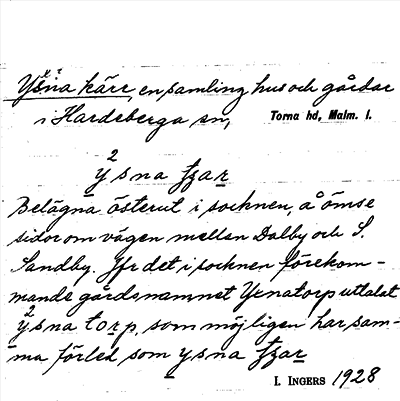 Ysna kärr, en samling hus och gårdar
i Hardeberga sn, Torna hd, Malm. l.
2
ysna tzar
Belägna österut i socknen, å ömse
sidor om vägen mellan Dalby och S.
Sandby. Jfr det i socknen förekom-
mande gårdsnamnet Ysnatorp uttalat
2
ysna torp, som möjligen har sam-
ma förled som ysna tzar
I. INGERS 1928